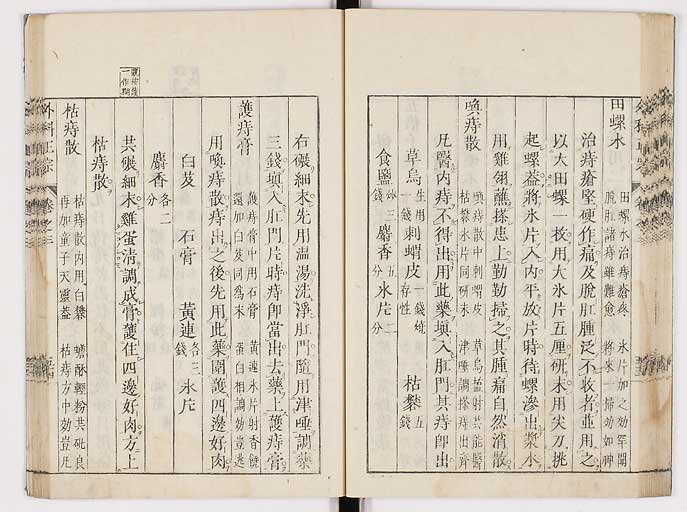 田螺水
田螺水治痔瘡疼　氷片加之効罕聞
脫肛諸痔雖難愈　將來一掃効如神
治痔瘡堅硬作痛及脫肛腫泛不收者並用之
以大田螺一枚用大氷片五厘研末用尖刀挑
起螺葢將氷片入內平放片時待螺滲出漿水
用雞翎蘸搽患上勤勤掃之其腫痛自然消散
喚痔散
喚痔散中刺蝟皮　草烏鹽射共能醫
枯礬氷片同研末　津唾調搽痔出齊
凡醫內痔不得出用此藥塡入肛門其痔卽出
草烏生用一錢　刺蝟皮一錢燒存性　枯礬五分
食鹽炒三錢　麝香五分　氷片二分
右碾細末先用温湯洗淨肛門隨用津唾調藥
三錢塡入肛門片時痔卽當出去藥上護痔膏
護痔膏
護痔膏中用石膏　黃連氷片射香饒
還加白芨同爲末　蛋白相調効豈遙
用喚痔散痔出之後先用此藥圍護四邊好肉
白芨　石膏　黃連各三錢　氷片
麝香各二分
共碾細末雞蛋清調成膏護住四邊好肉方上
枯痔散
枯痔散
枯痔散內用白礬　蟾酥輕粉共砒良
再加童子天靈葢　枯痔方中効豈凡
外科正宗　卷之三